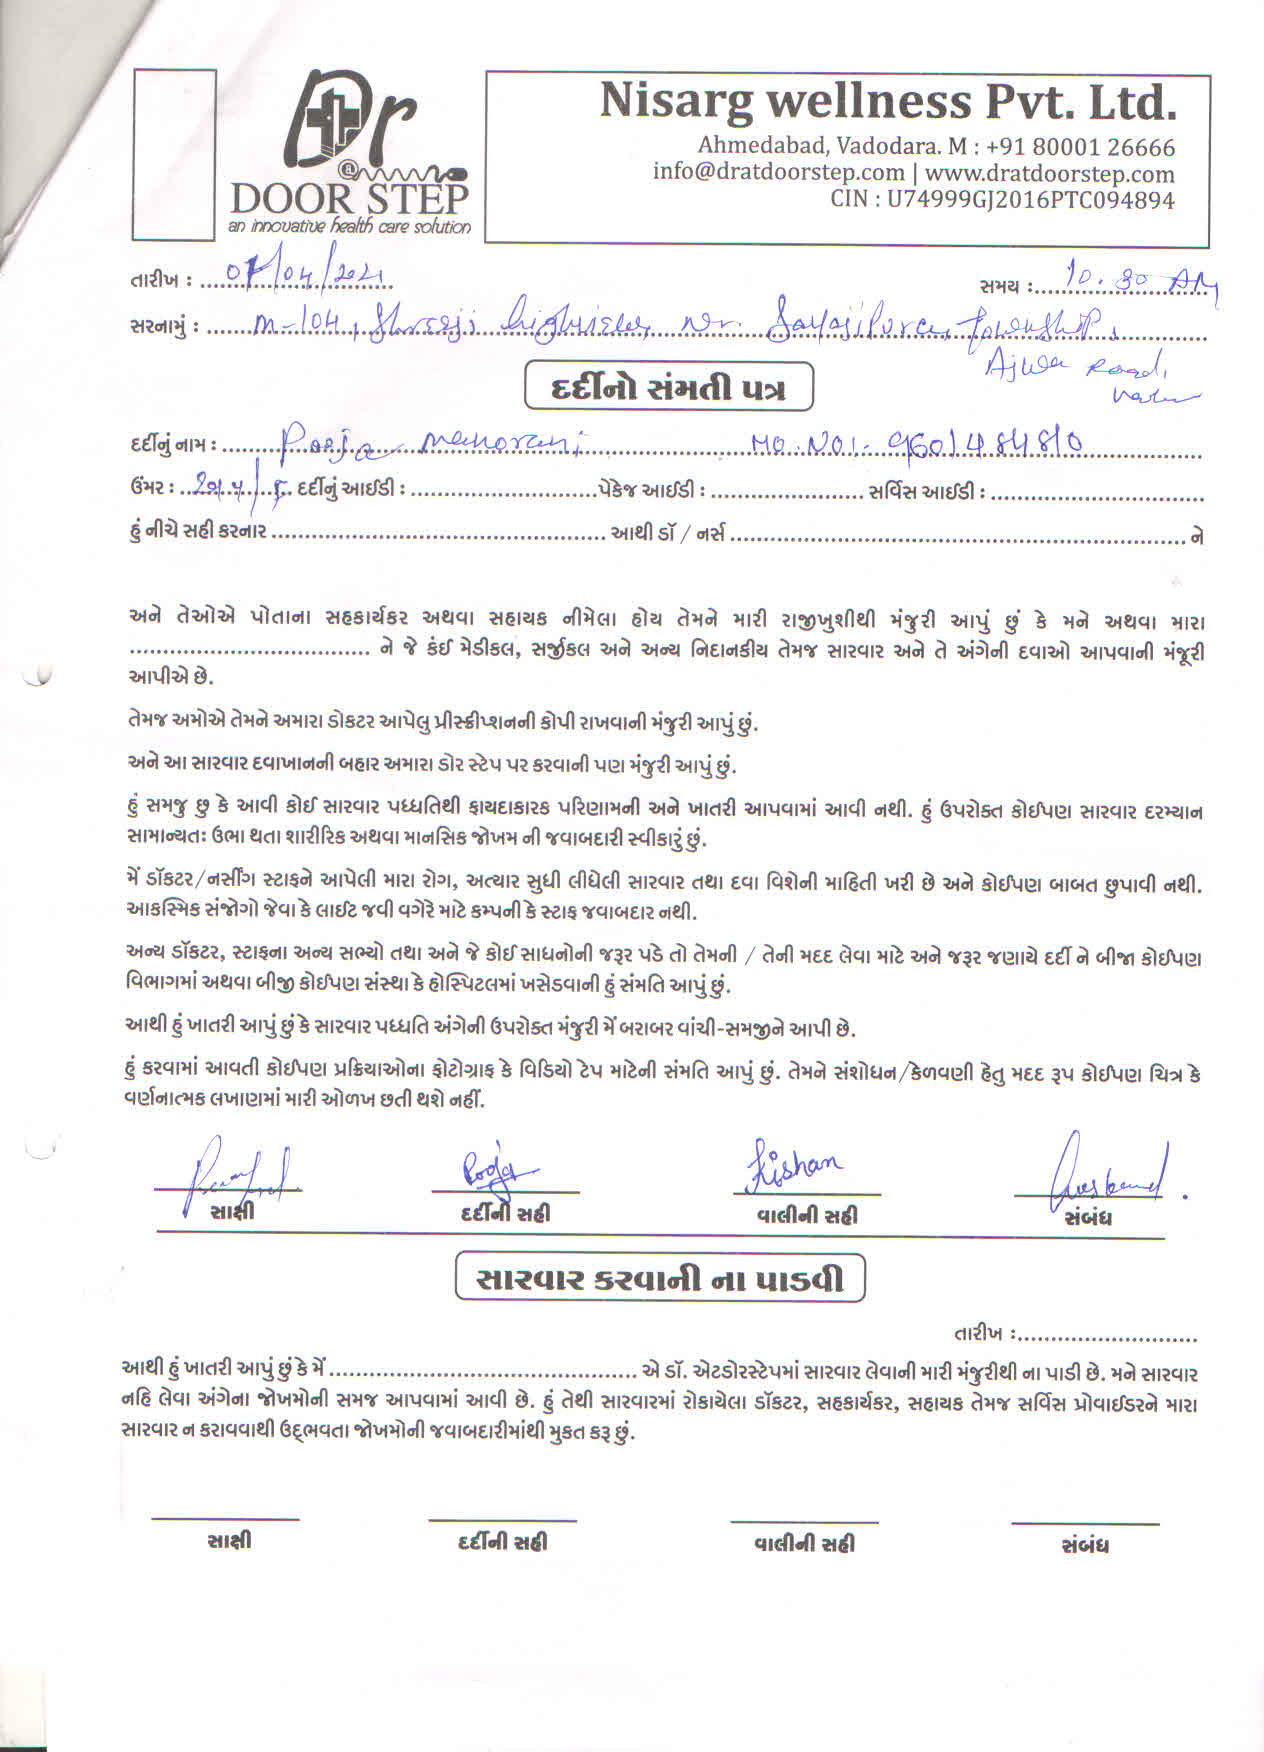 Dr
@
DOOR STEP
an innovative health care solution
Nisarg wellness Pvt. Ltd.
Ahmedabad, Vadodara. M : +91 80001 26666
info@dratdoorstep.com | www.dratdoorstep.com
CIN : U74999GJ2016PTC094894
તારીખ : 07/04/2021 સમય : 10.30 AM
સરનામું : M-104, Shreeji highrises, Nr. Sayajipura, township,
Ajwa Road,
દર્દીનો સંમતી પત્ર
દર્દીનું નામ : Pooja Manorani MO.NO:- 9601484810
ઉંમર : દર્દીનું આઈડી : પેકેજ આઈડી : સર્વિસ આઈડી :
હું નીચે સહી કરનાર આથી ડૉ / નર્સ ને
અને તેઓએ પોતાના સહકાર્યકર અથવા સહાયક નીમેલા હોય તેમને મારી રાજીખુશીથી મંજુરી આપું છું કે મને અથવા મારા
ને જે કંઈ મેડીકલ, સર્જીકલ અને અન્ય નિદાનકીય તેમજ સારવાર અને તે અંગેની દવાઓ આપવાની મંજૂરી
આપીએ છે.
તેમજ અમોએ તેમને અમારા ડોકટર આપેલુ પ્રીસ્ક્રીપ્શનની કોપી રાખવાની મંજુરી આપું છું.
અને આ સારવાર દવાખાનની બહાર અમારા ડોર સ્ટેપ પર કરવાની પણ મંજુરી આપું છું.
હું સમજુ છુ કે આવી કોઈ સારવાર પધ્ધતિથી ફાયદાકારક પરિણામની અને ખાતરી આપવામાં આવી નથી. હું ઉપરોક્ત કોઈપણ સારવાર દરમ્યાન
સામાન્યતઃ ઉભા થતા શારીરિક અથવા માનસિક જોખમ ની જવાબદારી સ્વીકારું છું.
મેં ડૉકટર/નર્સીંગ સ્ટાફને આપેલી મારા રોગ, અત્યાર સુધી લીધેલી સારવાર તથા દવા વિશેની માહિતી ખરી છે અને કોઈપણ બાબત છુપાવી નથી.
આકસ્મિક સંજોગો જેવા કે લાઈટ જવી વગેરે માટે કમ્પની કે સ્ટાફ જવાબદાર નથી.
અન્ય ડૉકટર, સ્ટાફના અન્ય સભ્યો તથા અને જે કોઈ સાધનોની જરૂર પડે તો તેમની / તેની મદદ લેવા માટે અને જરૂર જણાયે દર્દી ને બીજા કોઈપણ
વિભાગમાં અથવા બીજી કોઈપણ સંસ્થા કે હોસ્પિટલમાં ખસેડવાની હું સંમતિ આપું છું.
આથી હું ખાતરી આપું છું કે સારવાર પધ્ધતિ અંગેની ઉપરોક્ત મંજુરી મેં બરાબર વાંચી-સમજીને આપી છે.
હું કરવામાં આવતી કોઈપણ પ્રક્રિયાઓના ફોટોગ્રાફ કે વિડિયો ટેપ માટેની સંમતિ આપું છું. તેમને સંશોધન/કેળવણી હેતુ મદદ રૂપ કોઈપણ ચિત્ર કે
વર્ણનાત્મક લખાણમાં મારી ઓળખ છતી થશે નહીં.
Pooja Kishan Husband.
સાક્ષી દર્દીની સહી વાલીની સહી સંબંધ
સારવાર કરવાની ના પાડવી
તારીખ :
આથી હું ખાતરી આપું છું કે મેં એ ડૉ. એટડોરસ્ટેપમાં સારવાર લેવાની મારી મંજુરીથી ના પાડી છે. મને સારવાર
નહિ લેવા અંગેના જોખમોની સમજ આપવામાં આવી છે. હું તેથી સારવારમાં રોકાયેલા ડૉકટર, સહકાર્યકર, સહાયક તેમજ સર્વિસ પ્રોવાઈડરને મારા
સારવાર ન કરાવવાથી ઉદ્દભવતા જોખમોની જવાબદારીમાંથી મુકત કરૂ છું.
સાક્ષી દર્દીની સહી વાલીની સહી સંબંધ